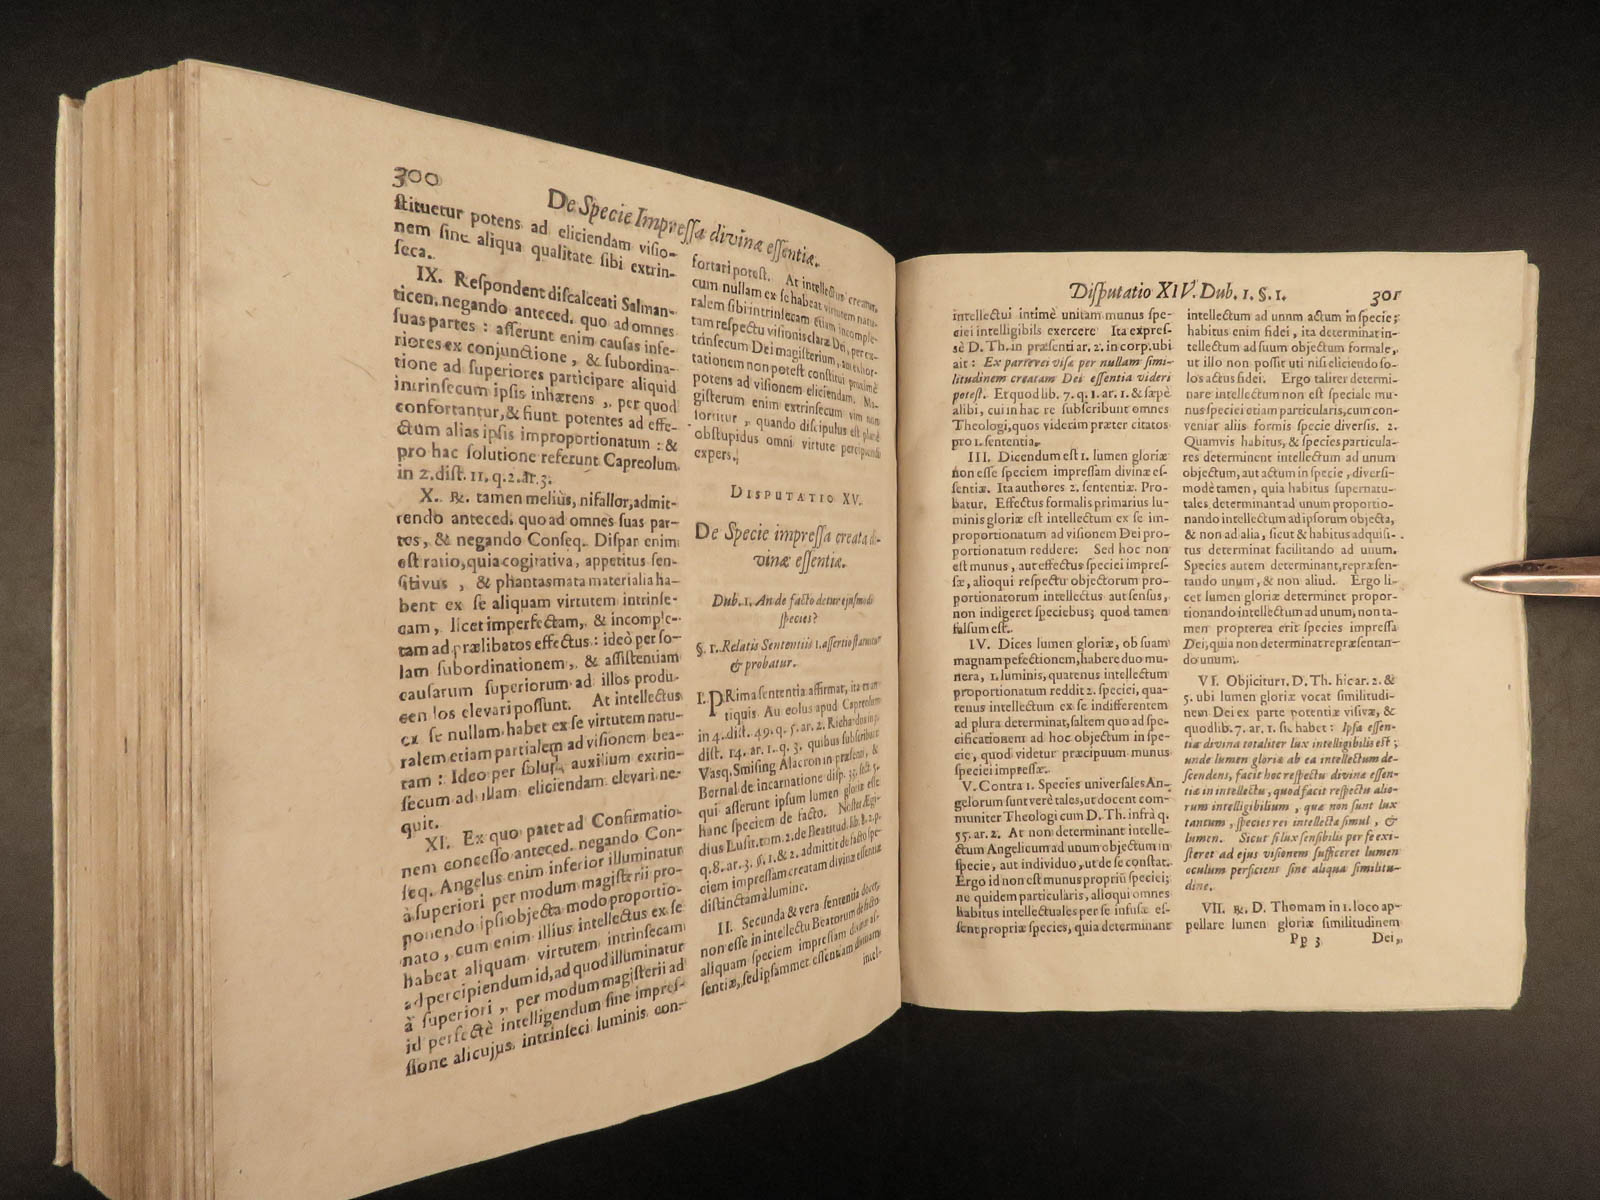 300
De Specie Impressa divinæ essentiæ.
stituetur potens ad eliciendam visio-
nem sine aliqua qualitate sibi extrin-
seca.
IX. Respondent discalceati Salman-
ticen. negando anteced. quo ad omnes
suas partes : asserunt enim causas infe-
riores ex conjunctione, & subordina-
tione ad superiores participare aliquid
intrinsecum ipsis inhærens, per quod
confortantur, & fiunt potentes ad effe-
ctum alias ipsis improportionatum : &
pro hac solutione referunt Capreolum.
in 2. dist. 11. q. 2. ar. 3.
X. ℞. tamen meliùs, nifallor, admit-
tendo anteced. quo ad omnes suas par-
tes, & negando Conseq. Dispar enim
est ratio, quia cogitativa, appetitus sen-
sitivus, & phantasmata materialia ha-
bent ex se aliquam virtutem intrinse-
cam, licet imperfectam, & incomple-
tam ad prælibatos effectus : ideò per so-
lam subordinationem, & assistentiam
causarum superiorum ad illos produ-
cendos elevari possunt. At intellectus
ex se nullam habet ex se virtutem natu-
ralem etiam partialem ad visionem bea-
tam : Ideo per solum auxilium extrin-
secum ad illam eliciendam elevari ne-
quit.
XI. Ex quo patet ad Confirmatio-
nem concesso anteced. negando Con-
seq. Angelus enim inferior illuminatur
à superiori per modum magisterii pro-
ponendo ipsi objecta modo proportio-
nato, cum enim illius intellectus ex se
habeat aliquam virtutem intrinsecam
ad percipiendum id, ad quod illuminatur
à superiori, per modum magisterii ad
id perfectè intelligendum sine impres-
sione alicujus intrinseci luminis con-
fortari potest. At intellectus creatus,
cum nullam ex se habeat virtutem natu-
ralem sibi intrinsecam etiam incomple-
tam respectu visionis claræ Dei, per ex-
trinsecum Dei magisterium, aut exhor-
tationem non potest constitui proximè
potens ad visionem eliciendam. Ma-
gisterum enim extrinsecum vim non
sortitur, quando discipulus est planè
obstupidus omni virtute percipiendi
expers.
DISPUTATIO XV.
De Specie impressa creata di-
vinæ essentiæ.
Dub. 1. An de facto detur ejusmodi
species?
§. 1. Relatis Sententiis 1. assertio statuitur
& probatur.
I. PRima sententia affirmat, ita ex an-
tiquis. Au eolus apud Capreolum
in 4. dist. 49. q. 5. ar. 2. Richardus in 3.
dist. 14. ar. 1. q. 3. quibus subscribunt
Vasq. Smising Alarcon in præsenti, &
Bernal de incarnatione disp. 35. sect. 5.
qui asserunt ipsum lumen gloriæ esse
hanc speciem de facto. Noster Ægi-
dius Lusit. tom. 2. de Beatitud. lib. 8. 2. p.
q. 8. ar. 3. §. 1. & 2. admittit de facto spe-
ciem impressam creatam divinæ essentiæ
distinctam à lumine.
II. Secunda & vera sententia docet,
non esse in intellectu Beatorum de facto
aliquam speciem impressam divinæ es-
sentiæ, sed ipsammet essentiam divinam
intel-
Disputatio XIV. Dub. 1. §. 1.
301
intellectui intimè unitam munus spe-
ciei intelligibils exercere Ita expres-
sè D. Th. in præsenti ar. 2. in corp. ubi
ait : Ex parte rei visæ per nullam simi-
litudinem creatam Dei essentia videri
potest. Et quodlib. 7. q. 1. ar. 1. & sæpè
alibi, cui in hac re subscribunt omnes
Theologi, quos viderim præter citatos
pro 1. sententia.
III. Dicendum est 1. lumen gloriæ
non esse speciem impressam divinæ es-
sentiæ. Ita authores 2. sententiæ. Pro-
batur. Effectus formalis primarius lu-
minis gloriæ est intellectum ex se im-
proportionatum ad visionem Dei pro-
portionatum reddere: Sed hoc non
est munus, aut effectus speciei impres-
sæ, alioqui respectu objectorum pro-
portionatorum intellectus aut sensus,
non indigeret speciebus; quod tamen
falsum est.
IV. Dices lumen gloriæ, ob suam
magnam pefectionem, habere duo mu-
nera, 1. luminis, quatenus intellectum
proportionatum reddit 2. speciei, qua-
tenus intellectum ex se indifferentem
ad plura determinat, saltem quo ad spe-
cificationem ad hoc objectum in spe-
cie, quod videtur præcipuum munus
speciei impressæ.
V. Contra 1. Species universales An-
gelorum sunt verè tales, ut docent com-
muniter Theologi cum D. Th. infrà q.
55. ar. 2. At non determinant intelle-
ctum Angelicum ad unum objectum in
specie, aut individuo, ut de se constat.
Ergo id non est munus propriū speciei;
ne quidem particularis, alloqui omnes
habitus intellectuales per se infusæ es-
sent propriæ species, quia determinant
intellectum ad unnm actum in specie;
habitus enim fidei, ita determinat in-
tellectum ad suum objectum formale,
ut illo non possit uti nisi eliciendo so-
los actus fidei. Ergo taliter determi-
nare intellectum non est speciale mu-
nus speciei etiam particularis, cum con-
veniar aliis formis specie diversis. 2.
Quamvis habitus, & species particula-
res determinent intellectum ad unum
objectum, aut actum in specie, diversi-
modè tamen, quia habitus supernatu-
tales determinat ad unum proportio-
nando intellectum ad ipsorum objecta,
& non ad alia, sicut & habitus adquisi-
tus determinat facilitando ad unum.
Species autem determinat, repræsen-
tando unum, & non aliud. Ergo li-
cet lumen gloriæ determinet propor-
tionando intellectum ad unum, non ta-
men propterea erit species impressa
Dei, quia non determinat repræsentan-
do unum.
VI. Objicitur 1. D. Th. hic ar. 2. &
5. ubi lumen gloriæ vocat similitudi-
nem Dei ex parte potentiæ visivæ, &
quodlib. 7. ar. 1. sic habet : Ipsa essen-
tia divina totaliter lux intelligibilis est ;
unde lumen gloriæ ab ea intellectum de-
scendens, facit hoc respectu divinæ essen-
tiæ in intellectu, quod facit respectu alio-
rum intelligibilium, quæ non sunt lux
tantum, species rei intellecta simul, &
lumen. Sicut si lux sensibilis per se exi-
steret ad ejus visionem sufficeret lumen
oculum perficiens sine aliqua similitu-
dine.
VII. ℞. D. Thomam in 1. loco ap-
pellare lumen gloriæ similitudinem
Pp 3
Dei,